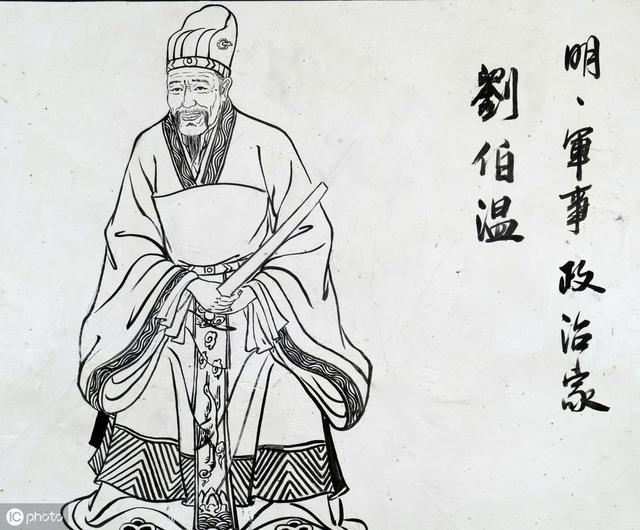 明、軍事政治家
劉伯温
IC photo